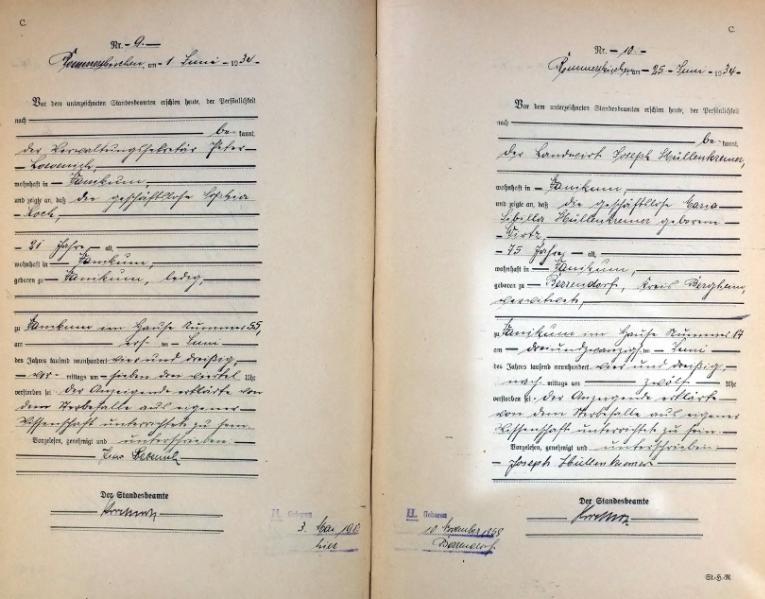 C.
Nr. - 9. -
Rommerskirchen, am - 1 Juni - 1934 -
Vor dem unterzeichneten Standesbeamten erschien heute, der Persönlichkeit
nach
be- kannt,
der Verwaltungssekretär Peter -
wohnhaft in - Vanikum,
und zeigte an, daß - die geschäftslose Sophia
- Koch,
- 21 Jahre, - a.
wohnhaft in - Vanikum,
geboren zu - Vanikum, ledig,
zu Vanikum im Hause Nummer 55,
am - ersten - Juni -
des Jahres tausend neunhundert vier und dreißig,
- vor- mittags um - sieben drei viertel Uhr
verstorben sei. Der Anzeigende erklärte von
dem Sterbefalle aus eigener
Wissenschaft unterrichtet zu sein.
Vorgelesen, genehmigt und - unterschrieben -
Der Standesbeamte
H. Geboren
3. Mai
hier
C.
Nr. - 10. -
Rommerskirchen am - 25 - Juni - 1934 -
Vor dem unterzeichneten Standesbeamten erschien heute, der Persönlichkeit
nach
be- kannt,
der Landwirt Joseph Hüllenkremer,
wohnhaft in - Vanikum,
und zeigte an, daß - die geschäftslose Maria
Sibilla Hüllenkremer geborene -
- Wirtz,
- 75 Jahre, - a.
wohnhaft in - Vanikum,
geboren zu - Berrendorf, Kreis Bergheim,
verwitwet,
zu Vanikum im Hause Nummer 17
am - dreiundzwanzigsten - Juni
des Jahres tausend neunhundert vier und dreißig, -
nach mittags um - zwölf - Uhr
verstorben sei. Der Anzeigende erklärte
von dem Sterbefalle aus eigener
Wissenschaft unterrichtet zu sein.
Vorgelesen, genehmigt und - unterschrieben -
- Joseph Hüllenkremer
Der Standesbeamte
H. Geboren
10 November 1858
Berrendorf
St.-H.-R.